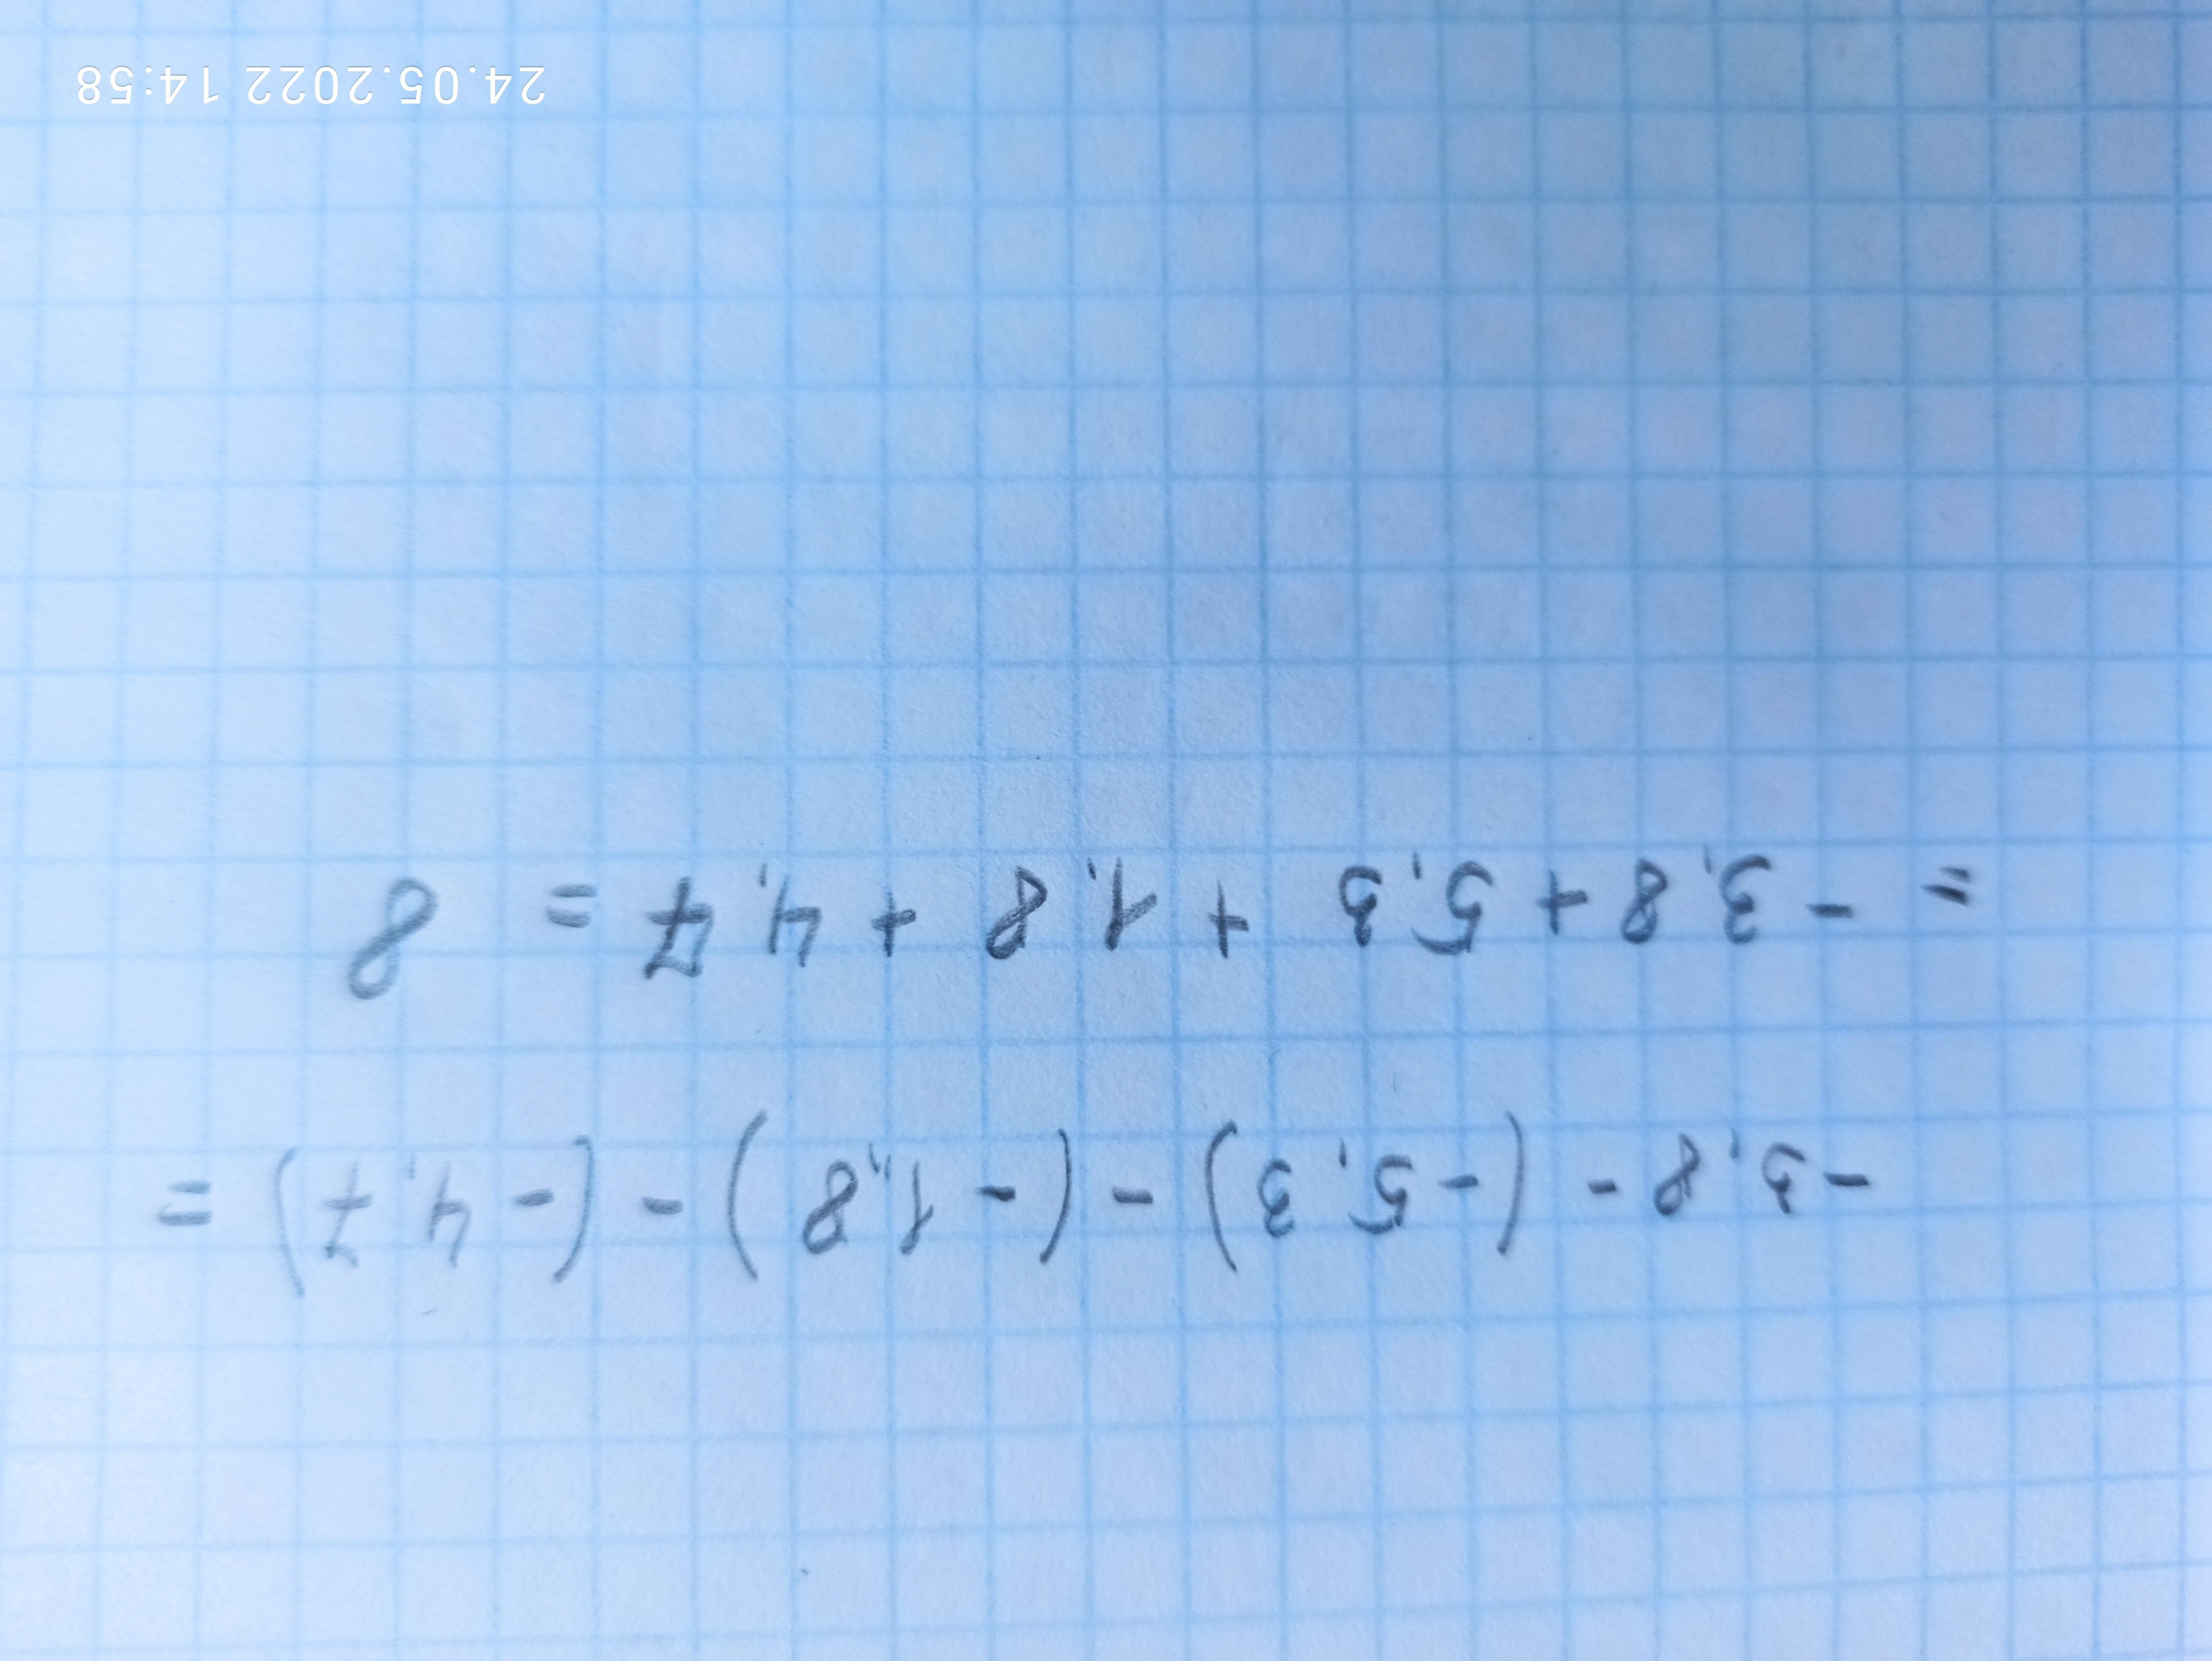 -3,8-(-5,3)-(-1,8)-(-4,7)=
=-3,8+5,3+1,8+4,7=8
24.05.2022 14:58